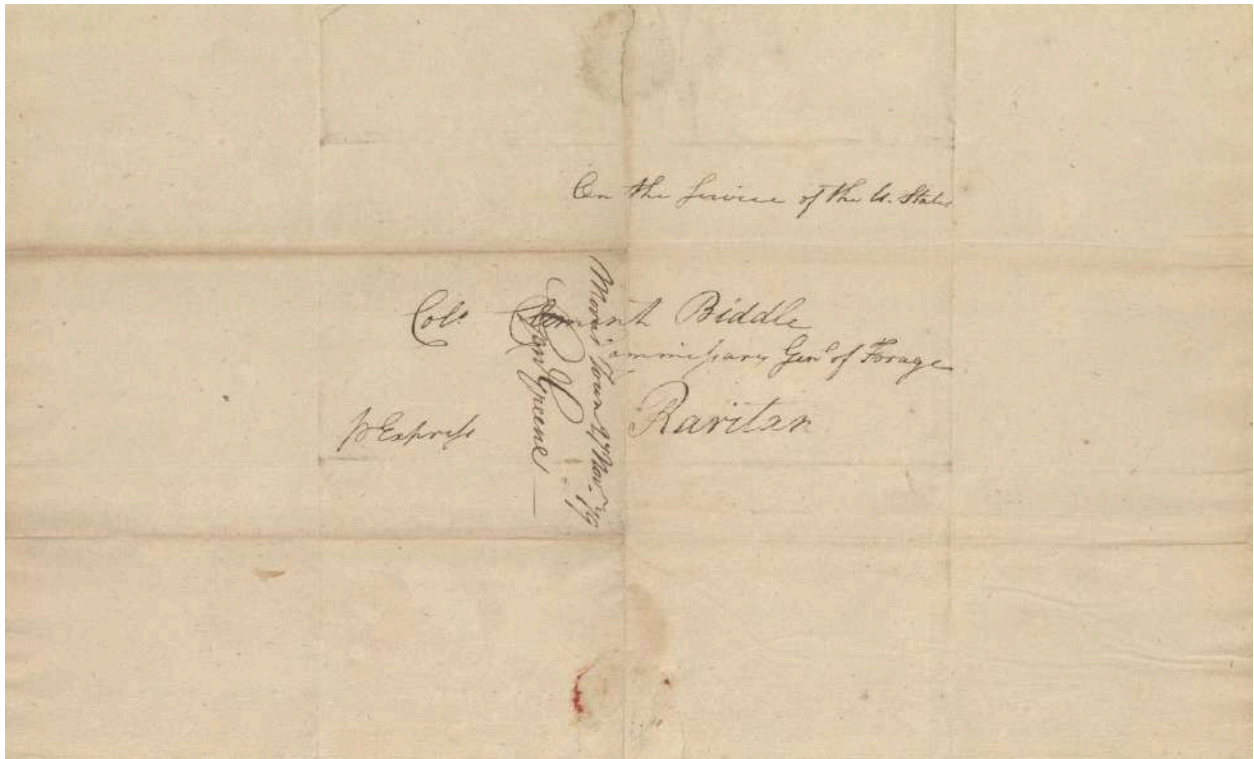 On the Service of the U. States
Col. Clement Biddle
Commissary Genl. of Forage
Raritan
p Express
Morris Town 27 Nov. 1779
Genl Greene